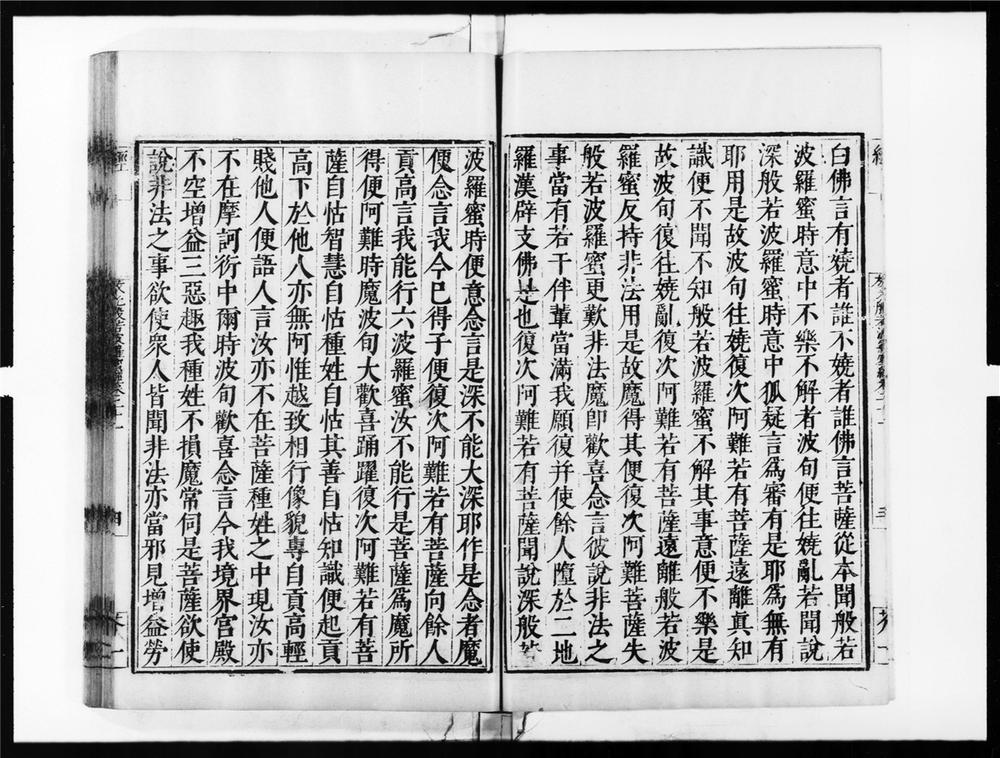 白佛言有嬈者誰不嬈者誰佛言菩薩從本聞般若
波羅蜜時意中不樂不解者波旬便往嬈亂若聞說
深般若波羅蜜時意中狐疑言為審有是耶為無有
耶用是故波旬往嬈復次阿難若有菩薩遠離真知
識便不聞不知般若波羅蜜不解其事意便不樂是
故波旬復往嬈亂復次阿難若有菩薩遠離般若波
羅蜜反持非法用是故魔得其便復次阿難菩薩失
般若波羅蜜更歎非法魔即歡喜念言彼說非法之
事當有若干伴輩當滿我願復并使餘人墮於二地
羅漢辟支佛是也復次阿難若有菩薩聞說深般若
波羅蜜時便意念言是深不能大深耶作是念者魔
便念言我今已得子便復次阿難若有菩薩向餘人
貢高言我能行六波羅蜜汝不能行是菩薩為魔所
得便阿難時魔波旬大歡喜踊躍復次阿難若有菩
薩自怙智慧自怙種姓自怙其善自怙知識便起貢
高下於他人亦無阿惟越致相行像貌專自貢高輕
賤他人便語人言汝亦不在菩薩種姓之中現汝亦
不在摩訶衍中爾時波旬歡喜念言今我境界宮殿
不空增益三惡趣我種姓不損魔常伺是菩薩欲使
說非法之事欲使眾人皆聞非法亦當邪見增益勞